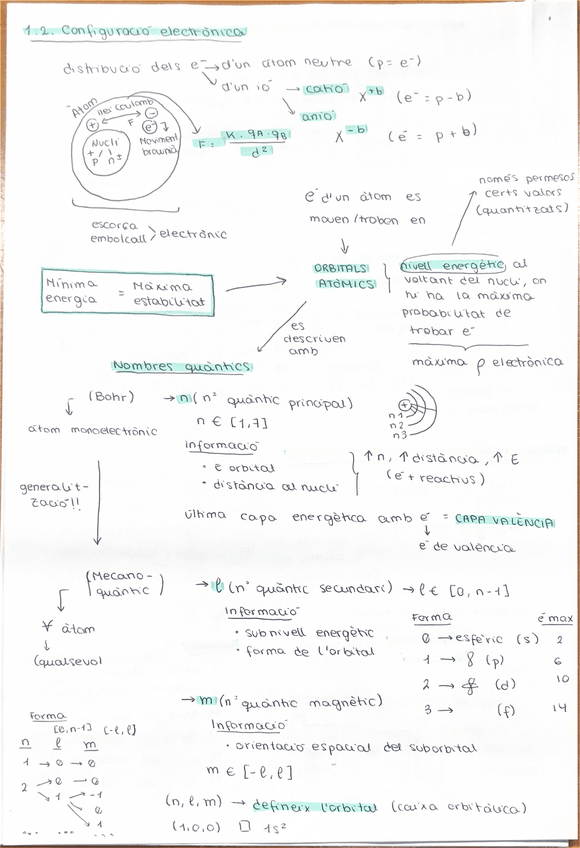 1.2. Configuració electrònica
distribució dels e⁻ → d'un àtom neutre (p = e⁻)
d'un ió → catió X⁺ᵇ (e⁻ = p - b)
anió X⁻ᵇ (e⁻ = p + b)
Àtom
llei coulomb
+ F -
e⁻
Nucli
+ / \ ±
p n
Moviment
brownià
F = K · qA · qB / d²
escorça
embolcall > electrònic
només permesos
certs valors
(quantitzats)
e⁻ d'un àtom es
mouen/troben en
ORBITALS
ATÒMICS
nivell energètic al
voltant del nucli, on
hi ha la màxima
probabilitat de
trobar e⁻
màxima ρ electrònica
Mínima energia = Màxima estabilitat
es
descriuen
amb
Nombres quàntics
(Bohr)
àtom monoelectrònic
generalit-
zació!!
→ n (nº quàntic principal)
n ∈ [1,7]
Informació
· e orbital
· distància al nucli
↑n, ↑distància, ↑E
(e⁻ + reactius)
+
n1
n2
n3
última capa energètica amb e⁻ = CAPA VALÈNCIA
↓
e⁻ de valència
(Mecano-
quàntic)
∀ àtom
↓
(qualsevol
→ l (nº quàntic secundari) → l ∈ [0, n-1]
Informació
· subnivell energètic
· forma de l'orbital
Forma e⁻ max
0 → esfèric (s) 2
1 → 8 (p) 6
2 → (d) 10
3 → (f) 14
→ m (nº quàntic magnètic)
Informació
· orientació espacial del suborbital
m ∈ [-l, l]
Forma
[0,n-1] [-l,l]
n l m
1 → 0 → 0
2 → 0 → 0
1 → -1
0
1
... ... ...
(n, l, m) → defineix l'orbital (caixa orbitàlica)
(1,0,0) □ 1s²